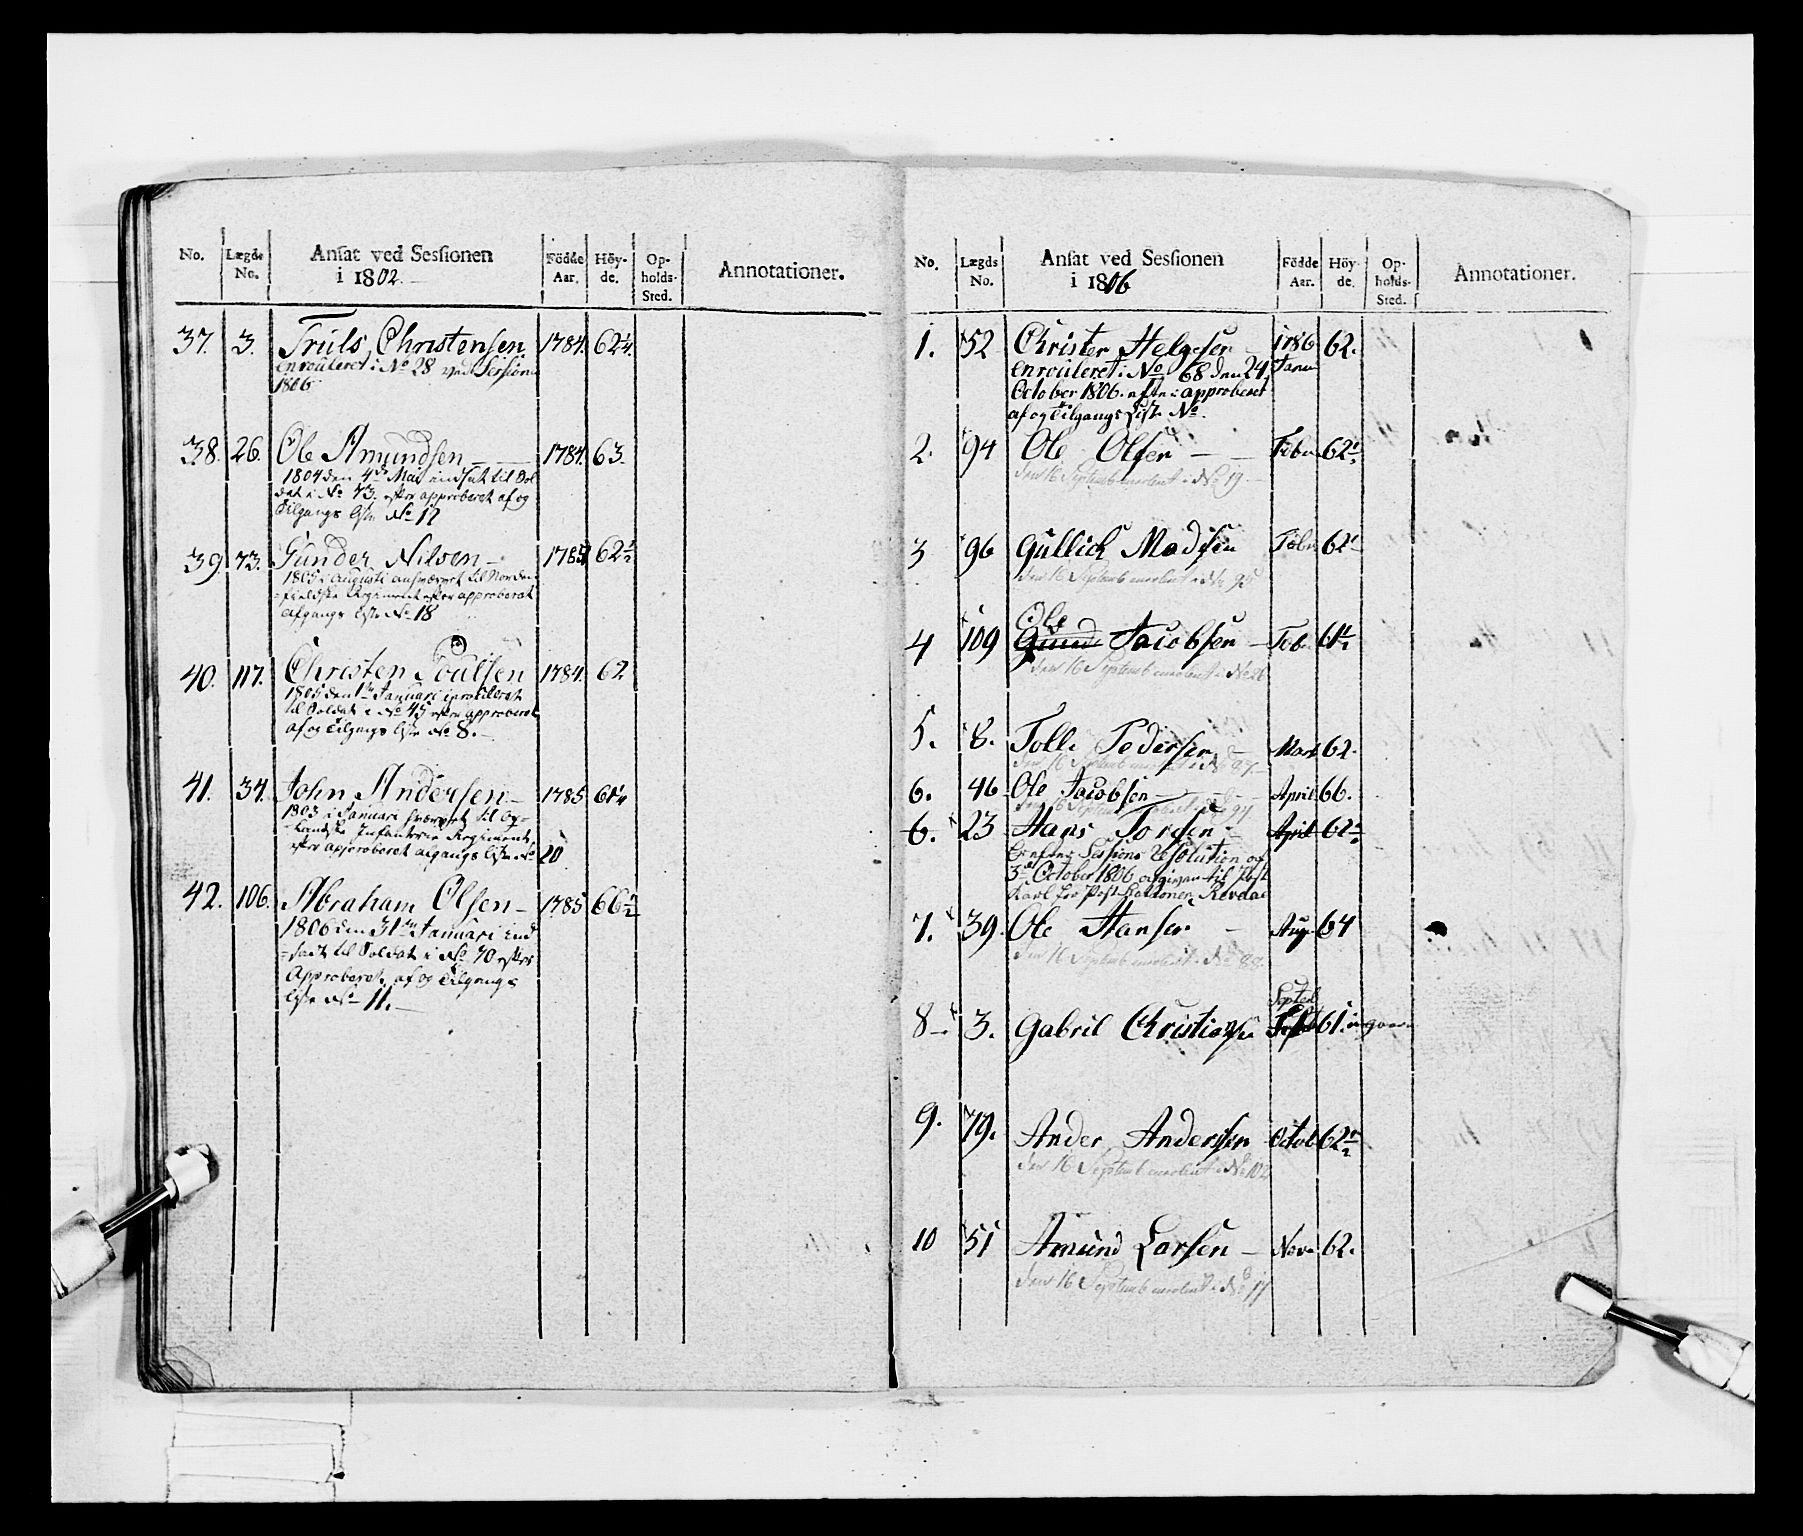 No. Lægds No. Ansat ved Sessionen i 1802. Födde Aar. Höyde. Opholds-Sted. Annotationer.
37. 3. Truls Christensen 1784. 62 1/4.
enrouleret i No 28 ved Session
1806
38. 26. Ole Amundsen 1784. 63.
1804 den 4de Mai indsat til Sol
dat i No 73. efter approberet af og
Tilgangs liste No 17
39. 73. Gunder Nilsen 1785 62 1/2
1805 i Augusti
Regiment efter approberet
afgangs liste No 18
40. 117. Christen Poulsen 1784. 62
1805 den 1te Januari
til Soldat i No 45 efter approberet
af og Tilgangs liste No 8.
41. 34. John Andersen 1785 61 1/4
1803 i Januari hvervet til Op-
landske Infanterie Regiment,
efter approberet afgangs liste No 20
42. 106. Abraham Olsen 1785 66 1/2
1806 den 31te Januari ind
satt til Soldat i No 70 efter
Approberet af og Tilgangs
liste No 11.
No. Lægds No. Ansat ved Sessionen i 1806 Födde Aar. Höyde. Opholds-Sted. Annotationer.
1. 52 Christen Helgesen 1786 62.
enrouleret i No 68 den 24 Janu
October 1806. efter approberet
af og tilgangs Liste No.
2. 94 Ole Olsen Febr 62 1/2
den 16 Septemb enrolent i No 19
3 96 Gullich Madsen Febr 62 1/2
den 16 Septemb enrolent i No 95
Ole
4 109 Jacobsen Feb 61 1/2
den 16 Septemb enrolent i No 26
5. 8. Tolle Pedersen Mart 62.
den 16 Septemb enrolent i No 97
6. 46 Ole Jacobsen April 66.
den 16 Septemb
6. 23 Hans Torsen April 62 1/2
Sessions Resolution og
3de October 1806 afgivon til Post
Karl
7. 39. Ole Hansen Aug 64
den 16 Septemb enrolent i No 88
Septeb
8 3. Gabril Christiansen 61.
9. 79. Ander Andersen Octob 62 1/2
den 16 Septemb enrolent i No 102
10 51 Amund Larsen Nov 62.
den 16 Septemb enrolent i No 77